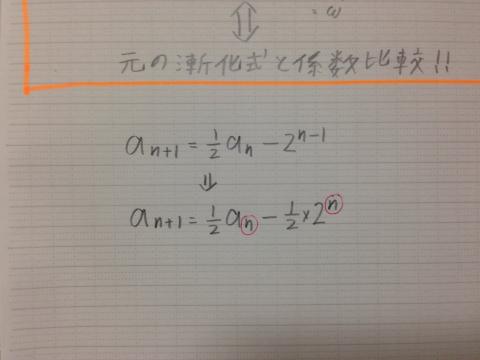 元の漸化式と係数比較!!
a_{n+1} = \frac{1}{2} a_n - 2^{n-1}
⇓
a_{n+1} = \frac{1}{2} a_n - \frac{1}{2} × 2^n